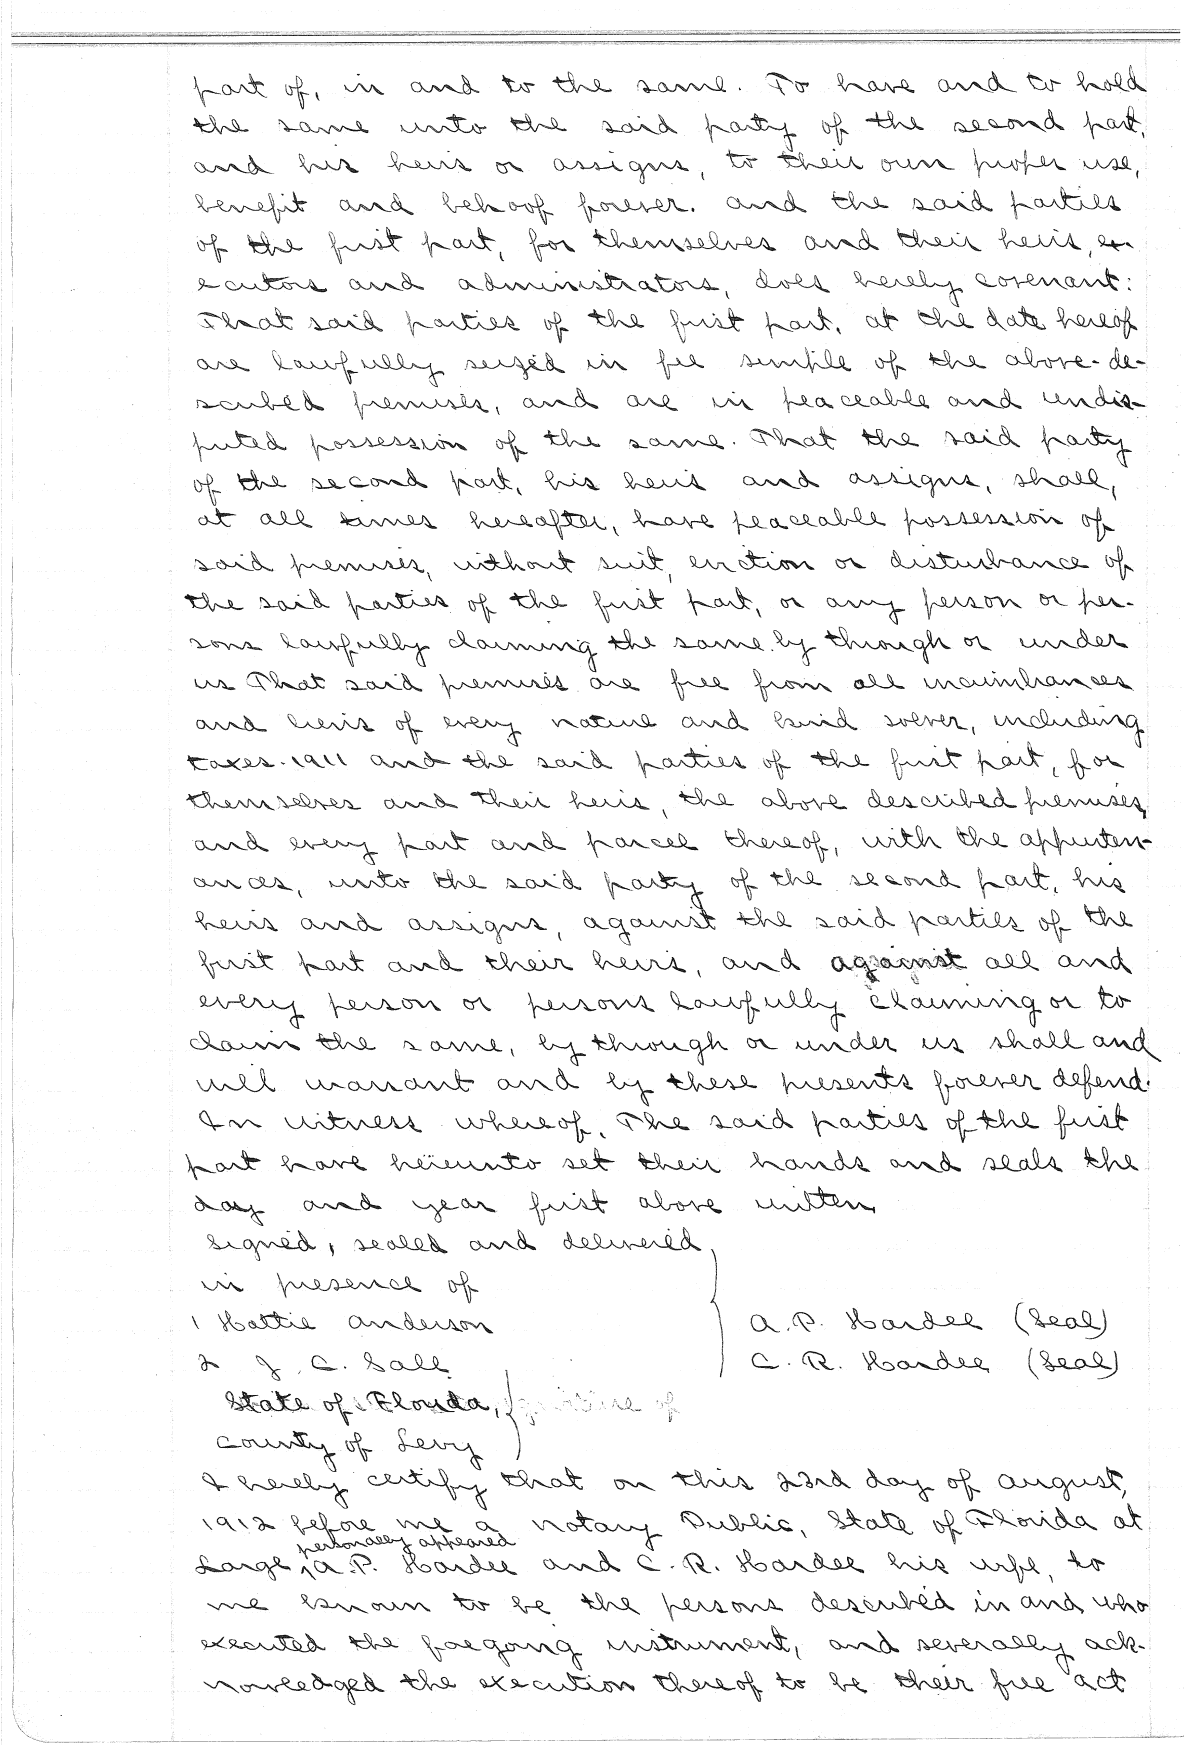 part of, in and to the same. To have and to hold
the same unto the said party of the second part,
and his heirs or assigns, to their own proper use,
benefit and behoof forever. and the said parties
of the first part, for themselves and their heirs, ex-
ecutors and administrators, does hereby covenant:
That said parties of the first part, at the date hereof
are lawfully seized in fee simple of the above-de-
scribed premises, and are in peaceable and undis-
puted possession of the same. That the said party
of the second part, his heirs and assigns, shall,
at all times hereafter, have peaceable possession of
said premises, without suit, eviction or disturbance of
the said parties of the first part, or any person or per-
sons lawfully claiming the same by through or under
us That said premises are free from all incumbrances
and liens of every nature and kind soever, including
taxes. 1911 and the said parties of the first part, for
themselves and their heirs, the above described premises,
and every part and parcel thereof, with the appurten-
ances, unto the said party of the second part, his
heirs and assigns, against the said parties of the
first part and their heirs, and against all and
every person or persons lawfully claiming or to
claim the same, by through or under us shall and
will warrant and by these presents forever defend.
In witness whereof, The said parties of the first
part have hereunto set their hands and seals the
day and year first above written,
Signed, sealed and delivered,
in presence of
1 Hattie Anderson A. P. Hardee (Seal)
2 J. C. Sale C. R. Hardee (Seal)
State of Florida,
County of Levy
I hereby certify that on this 23rd day of August,
1912 before me a notary Public, State of Florida at
personally appeared
Large, A. P. Hardee and C. R. Hardee his wife, to
me known to be the persons described in and who
executed the foegoing instrument, and severally ack-
nowledged the execution thereof to be their free act